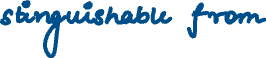 stinguishable from